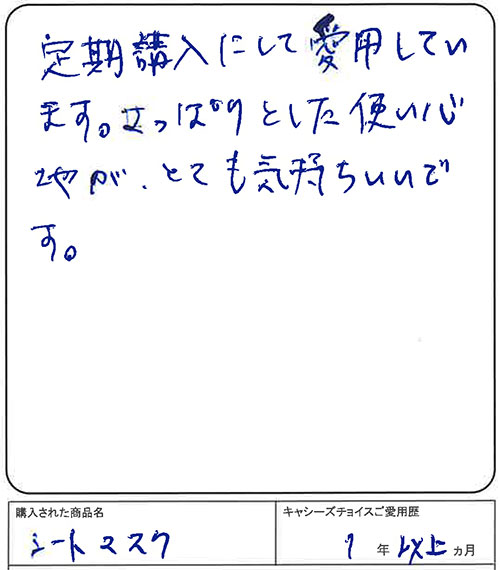 定期購入にして愛用してい
ます。さっぱりとした使い心
地が、とても気持ちいいで
す。
購入された商品名
シートマスク
キャシーズチョイスご愛用歴
1年以上ヵ月